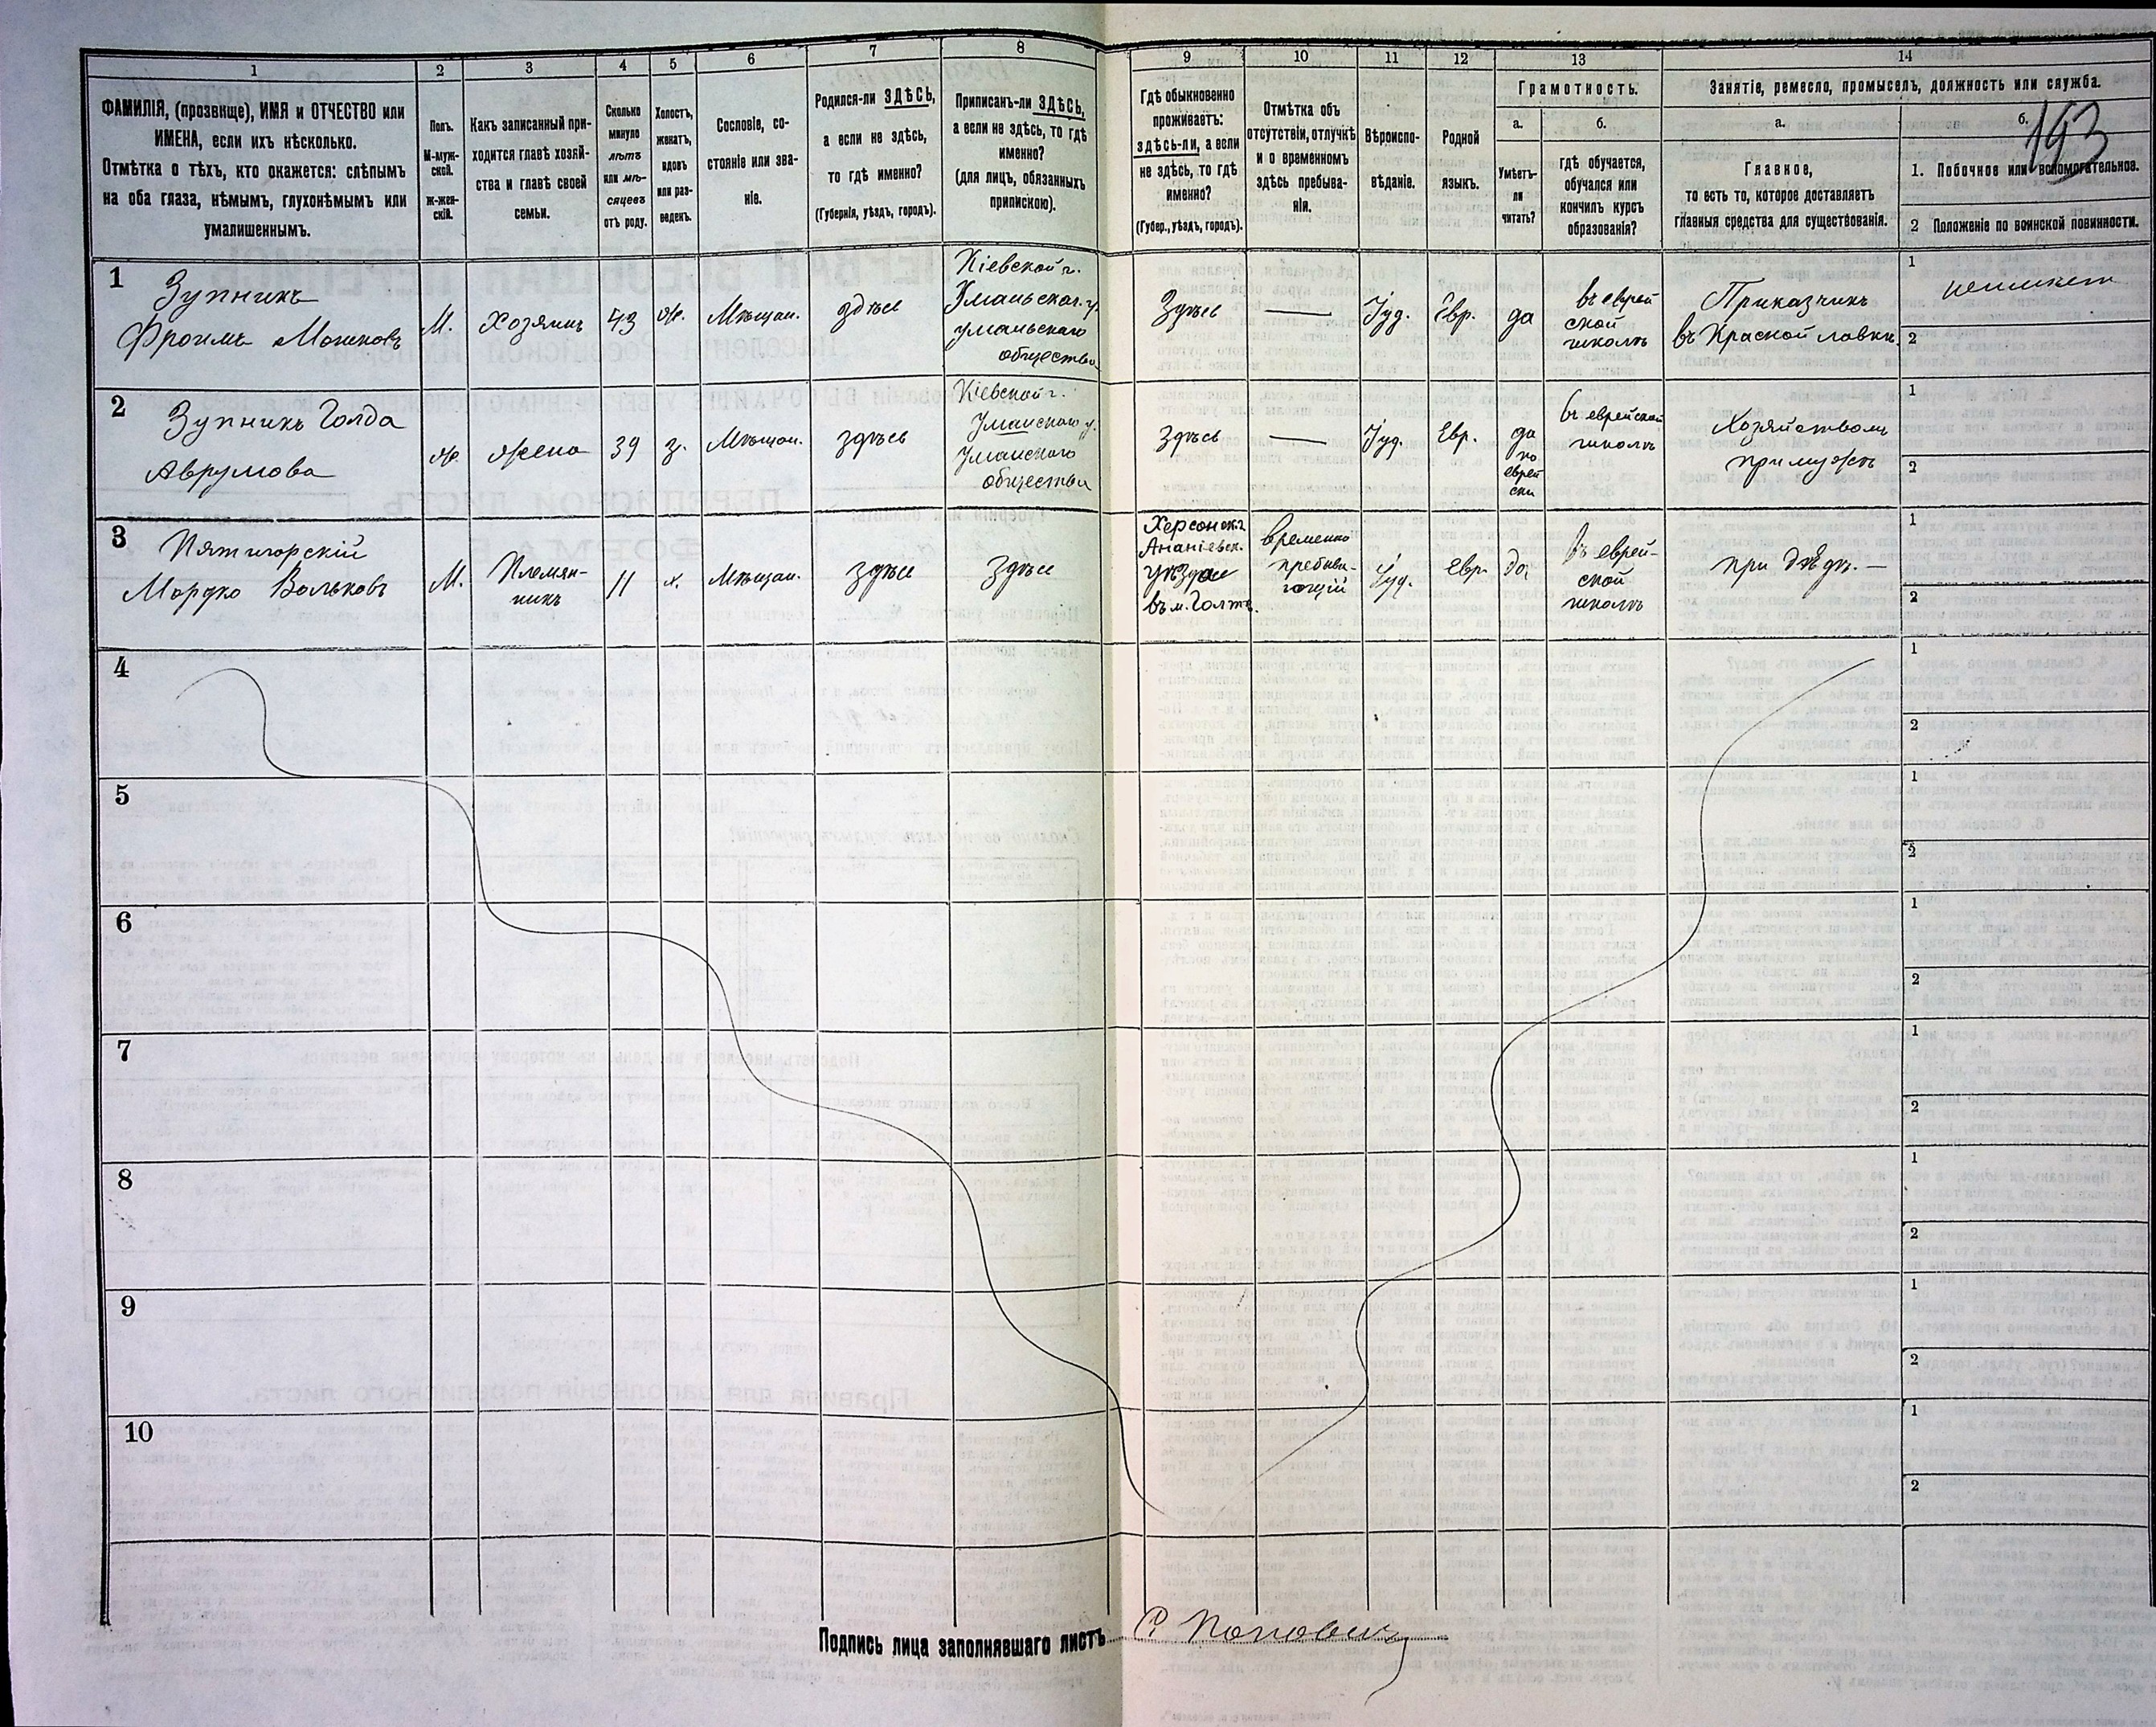 193
1 2 3 4 5 6 7 8 9 10 11 12 13 14
ФАМИЛІЯ, (прозвище), ИМЯ и ОТЧЕСТВО или
ИМЕНА, если ихъ нѣсколько.
Отмѣтка о тѣхъ, кто окажется: слѣпымъ
на оба глаза, нѣмымъ, глухонѣмымъ или
умалишеннымъ.
Полъ.
М-муж-
ской.
ж-жен-
скій.
Какъ записанный при-
ходится главѣ хозяй-
ства и главѣ своей
семьи.
Сколько
минуло
лѣтъ
или мѣ-
сяцевъ
отъ роду.
Холостъ,
женатъ,
вдовъ
или раз-
веденъ.
Сословіе, со-
стояніе или зва-
ніе.
Родился-ли ЗДѢСЬ,
а если не здѣсь,
то гдѣ именно?
(Губернія, уѣздъ, городъ).
Приписанъ-ли ЗДѢСЬ,
а если не здѣсь, то гдѣ
именно?
(для лицъ, обязанныхъ
припискою).
Гдѣ обыкновенно
проживаетъ:
здѣсь-ли, а если
не здѣсь, то гдѣ
именно?
(Губер., уѣздъ, городъ).
Отмѣтка объ
отсутствіи, отлучкѣ
и о временномъ
здѣсь пребыва-
ніи.
Вѣроиспо-
вѣданіе.
Родной
языкъ.
Грамотность.
а.
Умѣетъ-
ли
читать?
б.
гдѣ обучается,
обучался или
кончилъ курсъ
образованія?
Занятіе, ремесло, промыселъ, должность или служба.
а.
Главное,
то есть то, которое доставляетъ
главныя средства для существованія.
б.
1. Побочное или вспомогательное.
2 Положеніе по воинской повинности.
1
Зупникъ
Фроимъ Мошковъ
М.
Хозяинъ
43
ж.
Мѣщан.
здѣсь
Кіевской г.
Уманьскаг. у.
уманьскаго
общества
Здѣсь
—
Іуд.
Евр.
да
въ еврей
ской
школѣ
Приказчикъ
въ Красной лавкѣ.
1
2
2
Зупникъ Голда
Аврумова
ж.
жена
39
з.
Мѣщан.
здѣсь
Кіевской г.
Уманскаго у.
Уманскаго
общества
здѣсь
—
Іуд.
Евр.
да
по
еврей
ски
въ еврейской
школѣ
Хозяйствомъ
при мужѣ
1
2
3
Пятигорскій
Мордко Вольковъ
М.
Племян-
никъ
11
х.
Мѣщан.
здѣсь
Здѣсь
Херсонск. г.
Ананіевск.
уѣзда
въ м. Голтѣ.
временно
пребыва-
ющій
Іуд.
Евр.
да
въ еврей-
ской
школѣ
при дядѣ. —
1
2
4
1
2
5
1
2
6
1
2
7
1
2
8
1
2
9
1
2
10
1
2
Подпись лица заполнявшаго листъ
Поповичъ